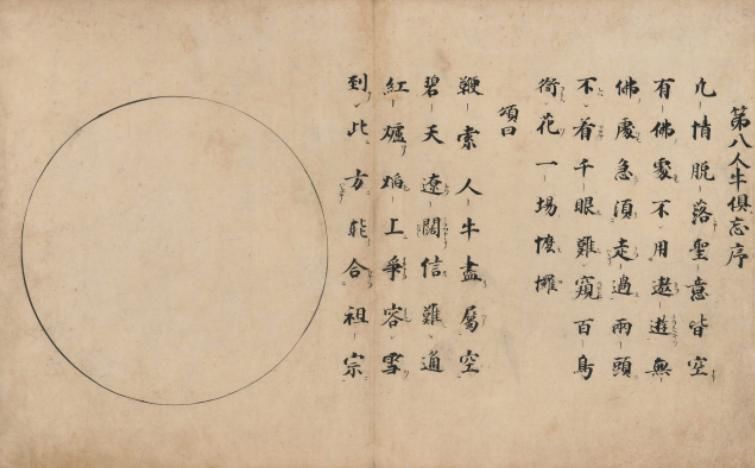 第八人牛俱忘序
凢情脱落聖意皆空
有佛處不用遨遊無
佛處急須走過兩頭
不着千眼難窺百鳥
銜花一場懡㦬
頌曰
鞭索人牛盡屬空
碧天遼闊信難通
紅爐焰上爭容雪
到此方能合祖宗